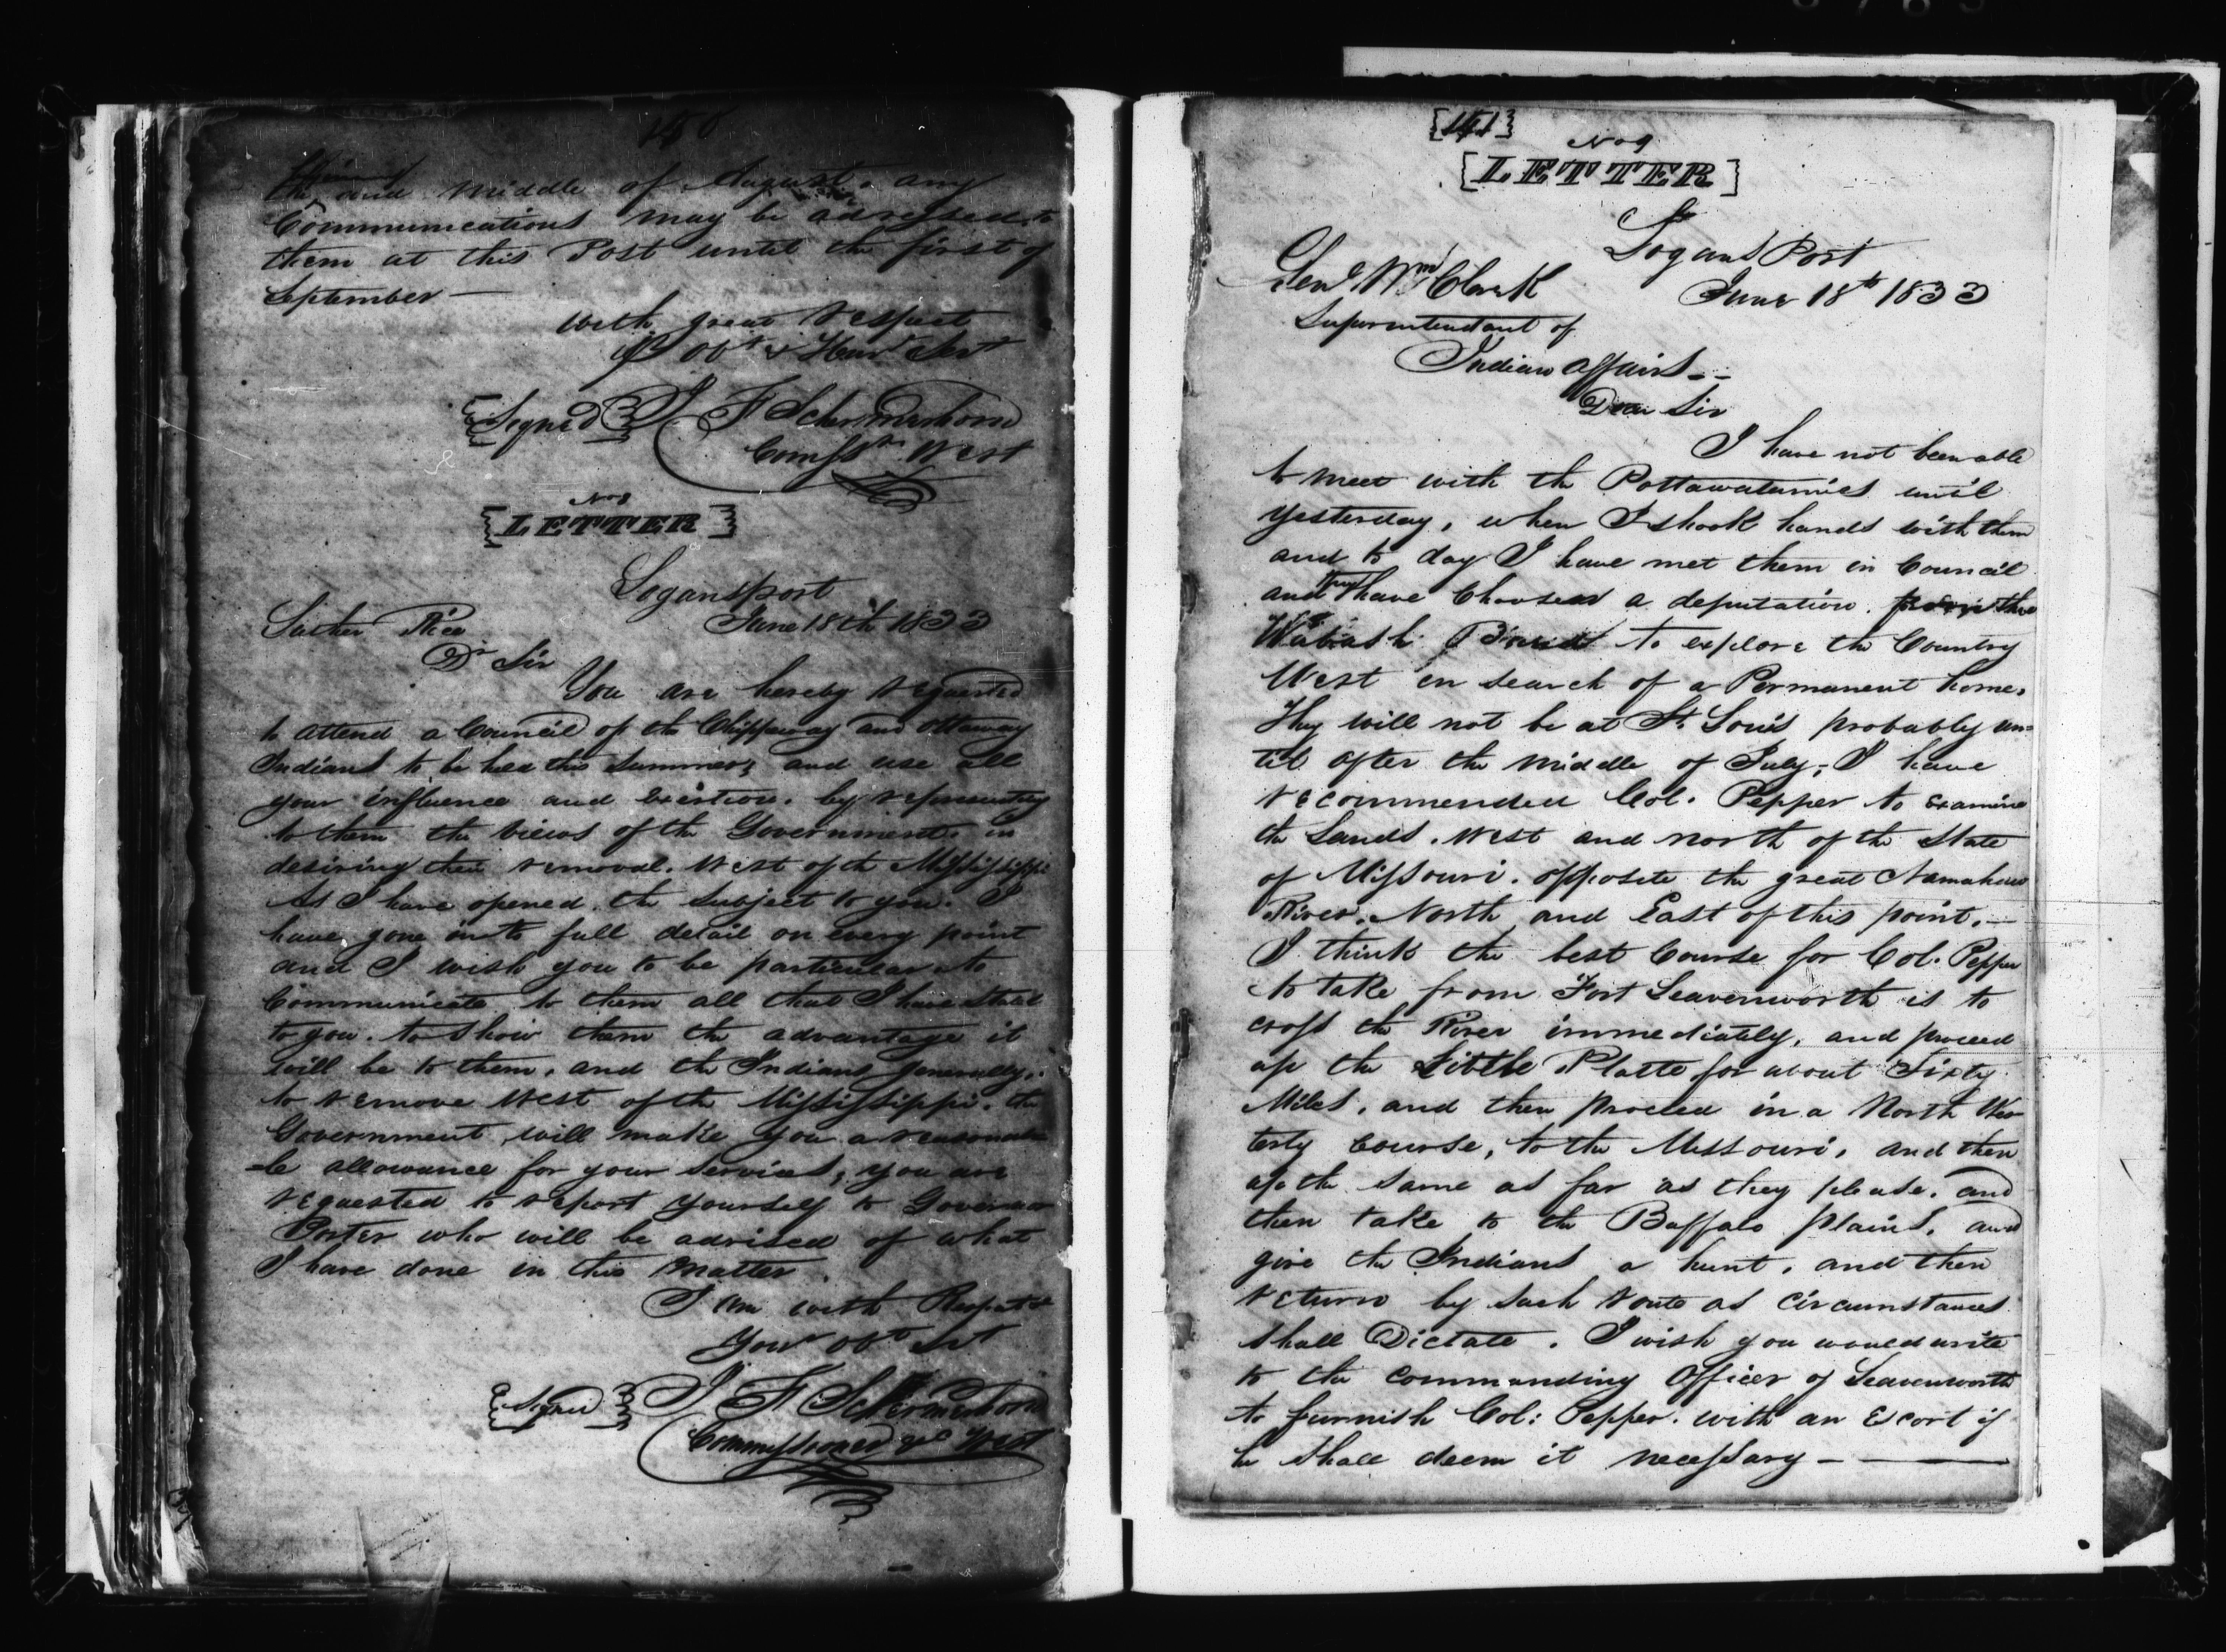 the and middle of August. any
Communications may be addressed to
them at this Post until the first of
September —
With great respect
Yr Obt & Hum Sert
{Signed} J F Schermerhorn
Comssr West
No 8
[LETTER]
Logansport
June 18th 1833
Luther Rice
Dr Sir
You are hereby requested
to attend a Council of the Chippeway and Ottaway
Indians to be held this summer; and use all
your influence and exertion. by representing
to them the views of the Government. in
desiring their removal. West of the Mississippi
As I have opened. the subject to you. I
have gone into full detail on every point
and I wish you to be particular to
Communicate to them all that I have stated
to you. to show them the advantage it
will be to them, and the Indians generally,
to remove West of the Mississippi. the
Government will make you a reasonab
-le allowance for your services; you are
requested to report yourself to Governor
Porter who will be advised of what
I have done in this matter.
I am with Respect
Your Obt Sert
{Signed} J F Schermerhorn
Commissioner &c West
[141]
No 9
[LETTER]
Logans Port
Genl Wm Clark June 18th 1833
Superintendant of
Indian Affairs --
Dear Sir
I have not been able
to meet with the Pottawatamies until
yesterday, when I shook hands with them
and to day I have met them in Council
and they have Choosen a deputation. from the
Wabash to explore the Country
West in search of a Permanent home.
They will not be at St. Louis probably un=
til after the middle of July; I have
recommended Col. Pepper to examine
the Lands. West and north of the State
of Missouri. opposite the great Namahaw
River. North and East of this point. —
I think the best Course for Col. Pepper
to take from Fort Leavenworth is to
cross the River immediately, and proceed
up the Little Platte for about Sixty
Miles, and then proceed in a North Wes
terly course, to the Missouri, and then
up the same as far as they please. and
then take to the Buffalo plains, and
give the Indians a hunt, and then
return by such route as circumstances
shall Dictate. I wish you would write
to the Commanding Officer of Leavenworth
to furnish Col: Pepper. with an Escort if
he shall deem it necessary — —